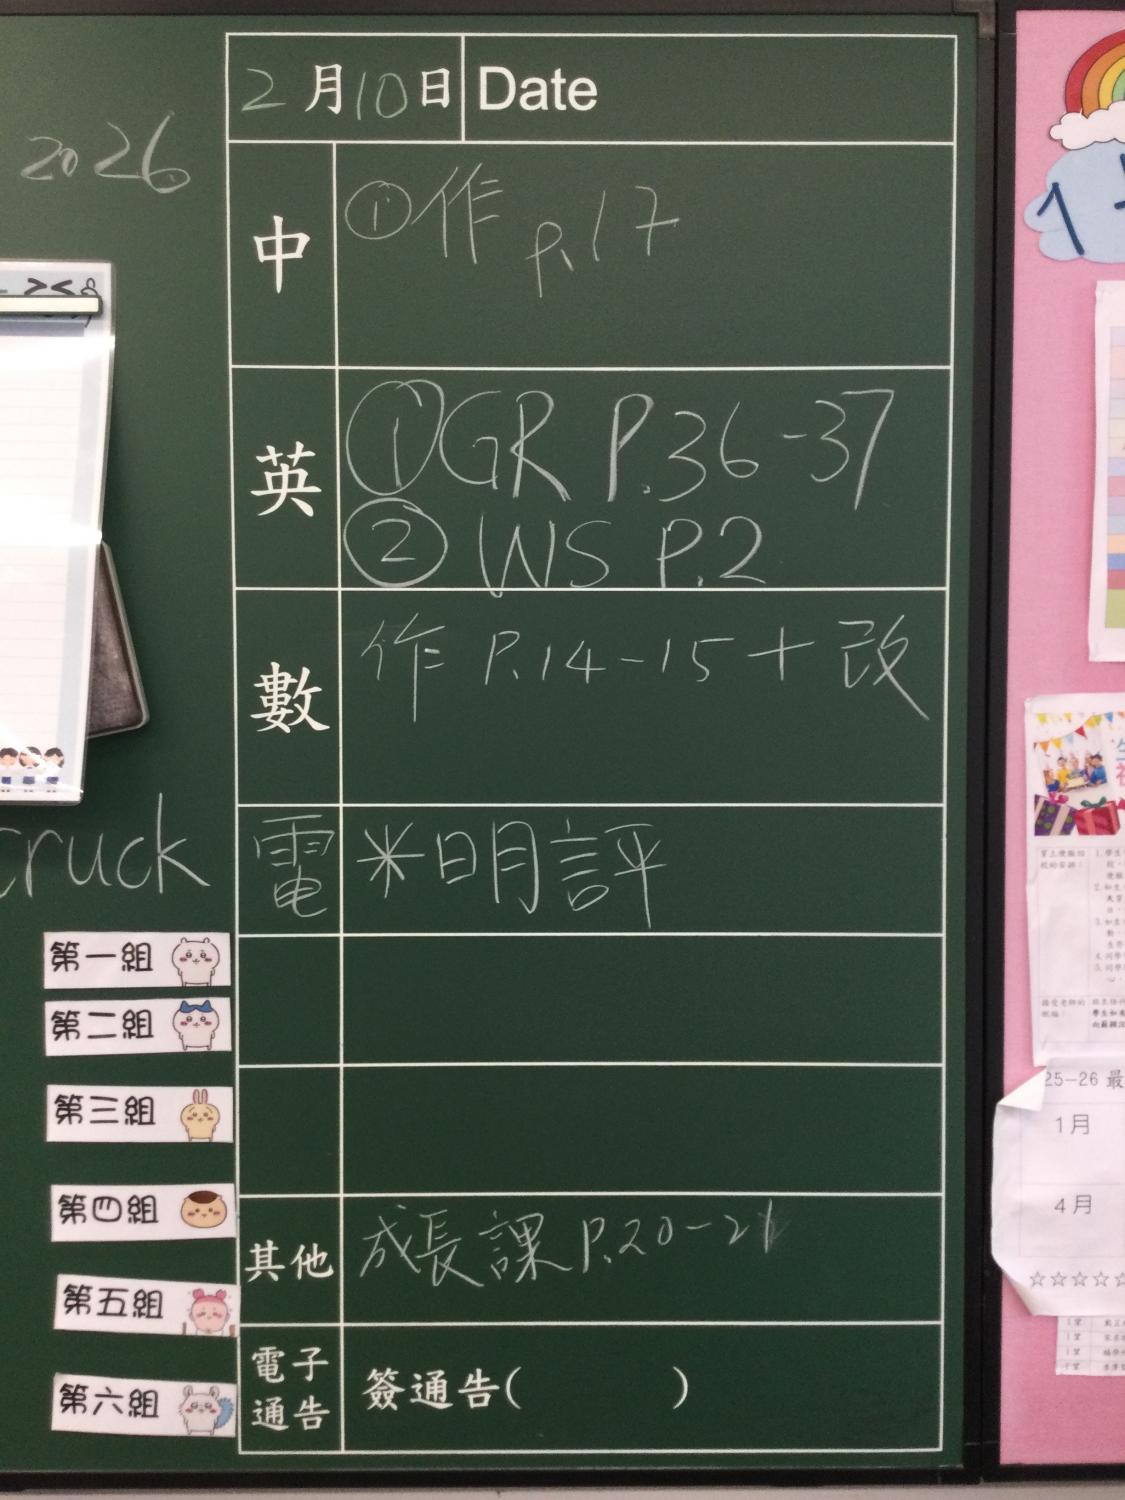 2月10日 Date
2026
中 ①作 p.17
英 ①GR P.36-37
② WS P.2
數 作 P.14-15+改
電 ※明評
truck
第一組
第二組
第三組
第四組
第五組
第六組
其他 成長課 P.20-21
電子通告 簽通告( )
25-26 最
1月
4月
☆☆☆☆☆